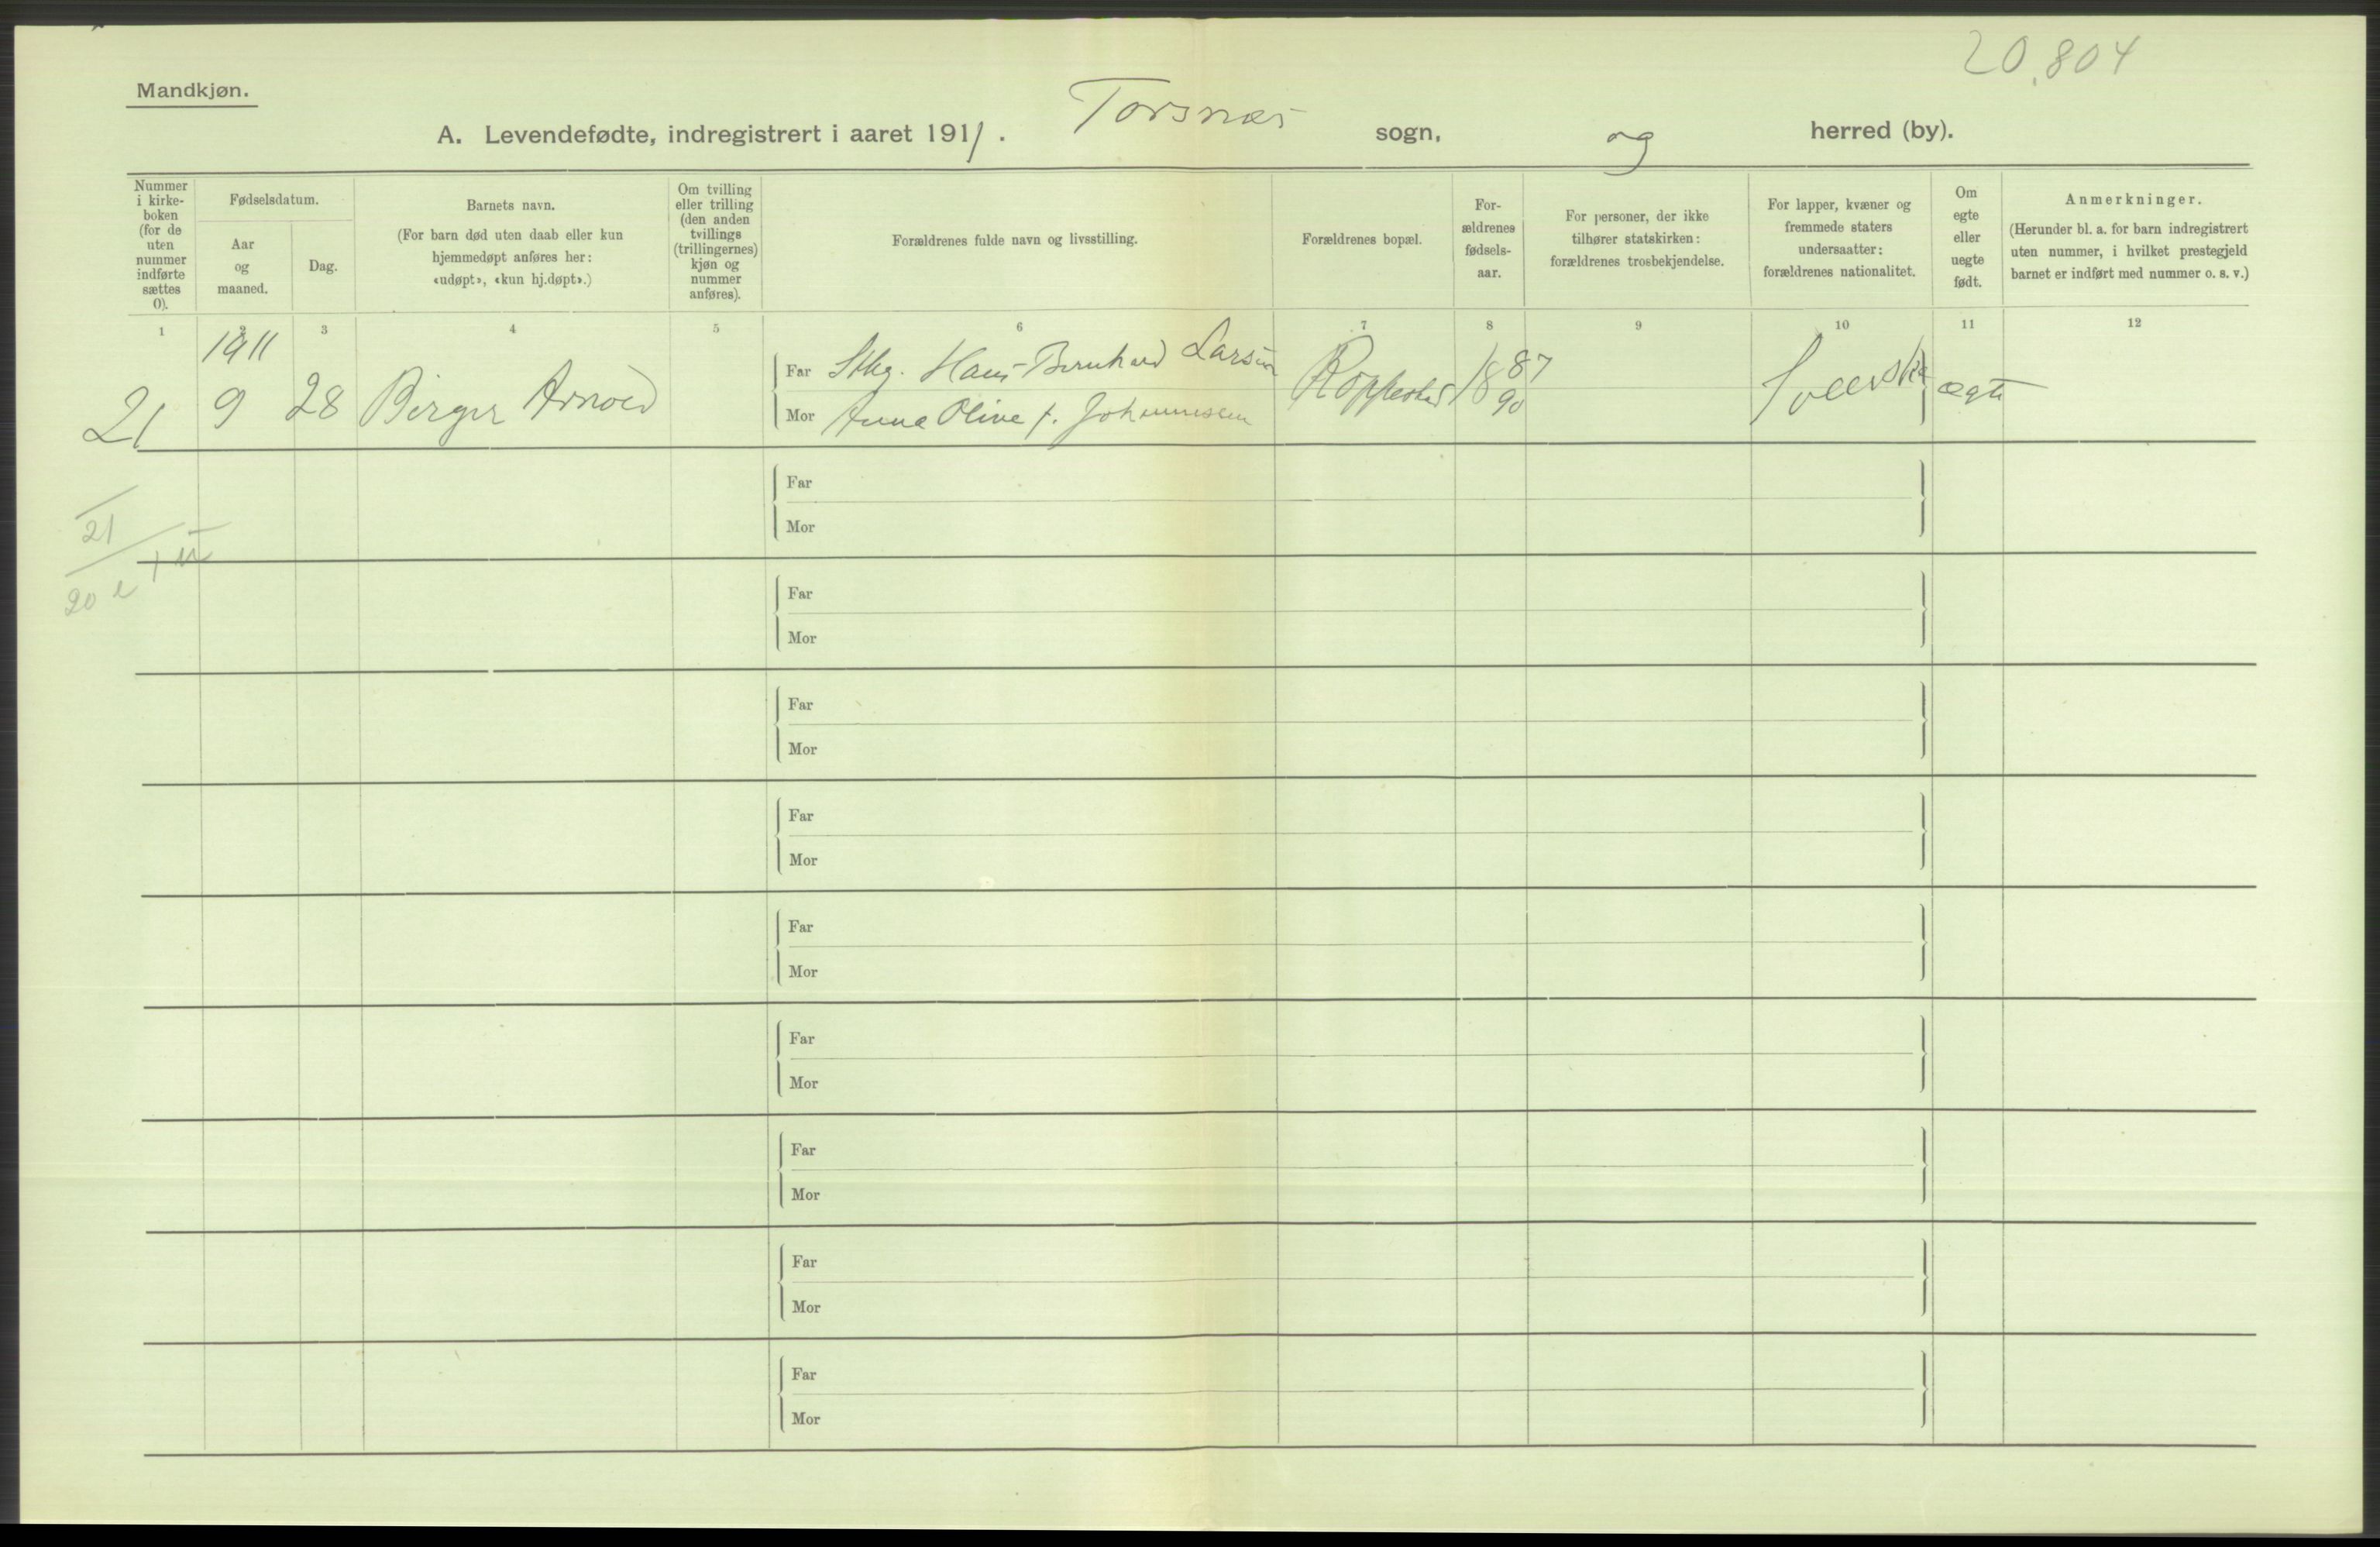 20,804
Mandkjøn.
A. Levendefødte, indregistrert i aaret 1911. Torsnæs sogn, og herred (by).
Nummer i kirkeboken (for de uten nummer indførte sættes 0).
Fødselsdatum.
Aar og maaned.
Dag.
Barnets navn.
(For barn død uten daab eller kun hjemmedøpt anføres her: «udøpt», «kun hj.døpt».)
Om tvilling eller trilling (den anden tvillings (trillingernes) kjøn og nummer anføres).
Forældrenes fulde navn og livsstilling.
Forældrenes bopæl.
For-
ældrenes
fødsels-
aar.
For personer, der ikke
tilhører statskirken:
forældrenes trosbekjendelse.
For lapper, kvæner og
fremmede staters
undersaatter:
forældrenes nationalitet.
Om
egte
eller
uegte
født.
Anmerkninger.
(Herunder bl. a. for barn indregistrert
uten nummer, i hvilket prestegjeld
barnet er indført med nummer o. s. v.)
1 2 3 4 5 6 7 8 9 10 11 12
1911
Far Sthg. Hans Bernhard Larsen 1887
21 9 28 Birger Arnold Svenske ægte
Mor Anna Olive f. Johannessen 90
Far
Mor
21
20 e + u
Far
Mor
Far
Mor
Far
Mor
Far
Mor
Far
Mor
Far
Mor
Far
Mor
Far
Mor